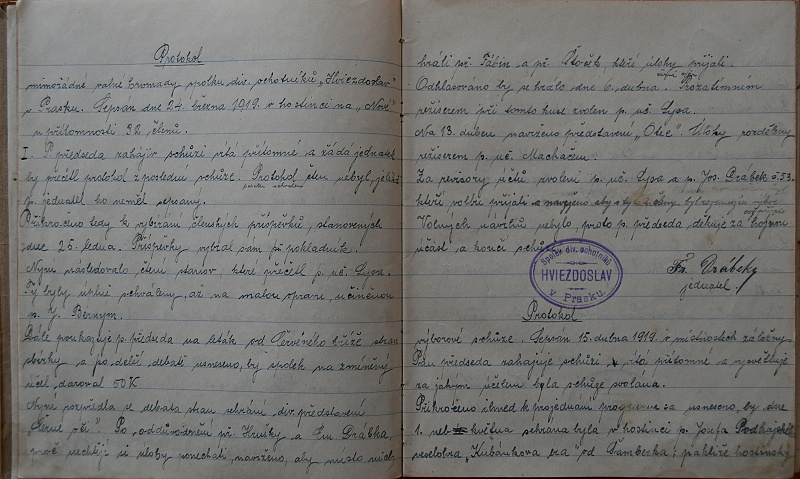 Protokol
mimořádné valné hromady spolku div. ochotníků „Hviezdoslav"
v Prasku. Sepsán dne 24. března 1919. v hostinci na „Nové"
v přítomnosti 32 členů.
I. P. předseda zahájiv schůzi vítá přítomné a žádá jednatele
by přečetl protokol z poslední schůze. Protokol čten nebyl, jelikož
p. jednatel ho neměl sepsaný.
Přikročeno tedy k vybírání členských příspěvků, stanovených
dne 25. ledna. Příspěvky vybral sám p. pokladník.
Nyní následovalo čtení stanov které přečetl p. uč. Sysa.
Ty byly úplně schváleny, až na malou opravu, učiněnou
p. J. Berným.
Dále poukazuje p. předseda na leták od Červeného kříže stran
sbírky a po delší debatě usneseno, by spolek na zmíněný
účel daroval 50 K
Nyní rozpředla se debata stran sehrání div. představení
„Černé oči." Po oddůvodnění př. Hrušky a Em. Drábka,
proč nechtějí si úlohy ponechati, navrženo, aby místo nich
hráli př. Fábin a př. Štoček kteří úlohy přijali.
Odhlasováno by se hrálo dne 6. dubna. Prozatímním
režiserem při tomto kuse zvolen p. uč. Sysa.
Na 13. duben navrženo představení „Otec". Úlohy rozděleny
režiserem p. uč. Macháčem.
Za revisory účtů zvoleni p. uč. Sysa a p. Jos. Drábek č. 53.
kteří volbu přijali a navrženo aby
Volných návrhů nebylo, proto p. předseda děkuje za hojnou
účast a končí schůzi.
Spolek div. ochotníků
HVIEZDOSLAV
v Prasku.
Fr. Drábek
jednatel.
Protokol
výborové schůze. Sepsán 15. dubna 1919. v místnostech záložny.
Pan předseda zahajuje schůzi, vítá přítomné a vysvětluje
za jakým účelem byla schůze svolána.
Přikročeno ihned k projednání programu za usneseno, by dne
1. května sehrána byla v hostinci p. Josefa Podhajské
veselohra „Kubánkova éra" od Šamberka; pakliže hostinský